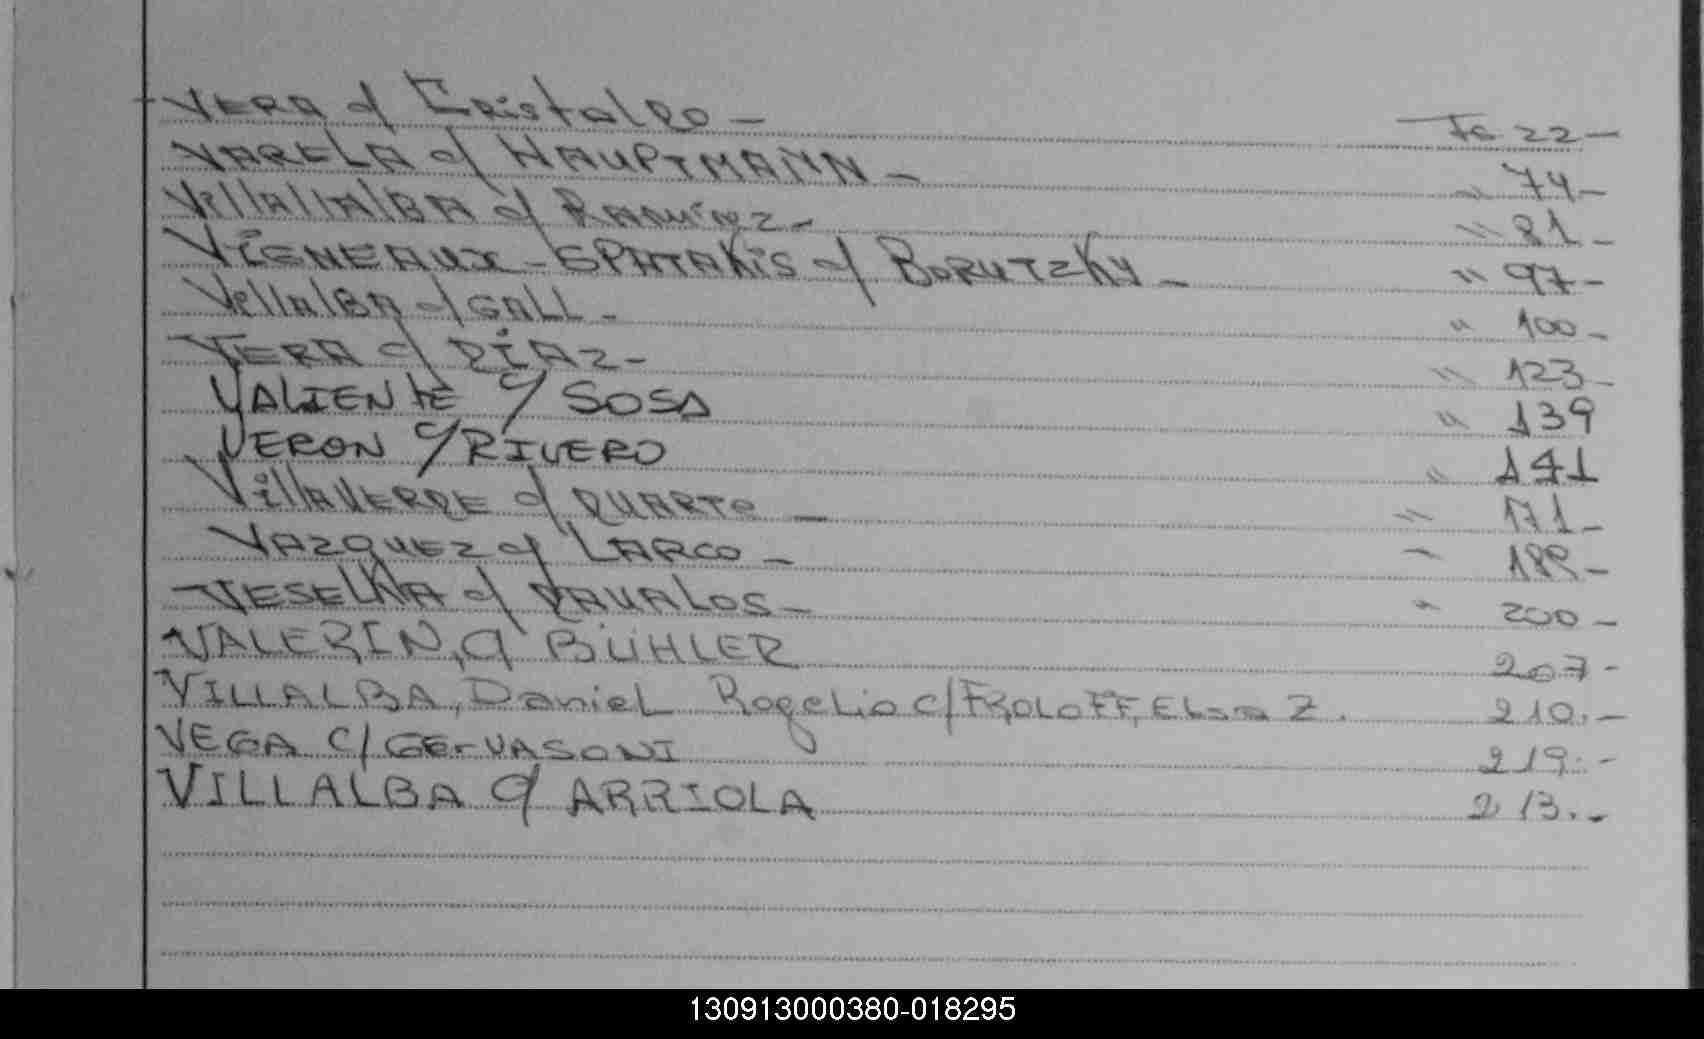 VERA c/ Cristaldo - Fs 22 -
VARELA c/ HAUPTMANN - " 74 -
Villalba c/ Ramírez - " 81 -
VIGNEAUX - SPATAKIS c/ BORUTZKY - " 97 -
Villalba c/ GALL - " 100 -
VERA c/ DÍAZ - " 123 -
VALIENTE c/ SOSA " 139
VERON c/ RIVERO " 141
VillaVERDE c/ DUARTe - " 171 -
VAZQUEZ c/ LARCO - " 188 -
VESELKA c/ DAVALOS - " 200 -
VALERIN, c/ BÜHLER 207 -
VILLALBA, Daniel Rogelio c/ FROLOFF, Elsa Z. 210. -
VEGA c/ GERVASONI 219. -
VILLALBA c/ ARRIOLA 213. -
130913000380-018295